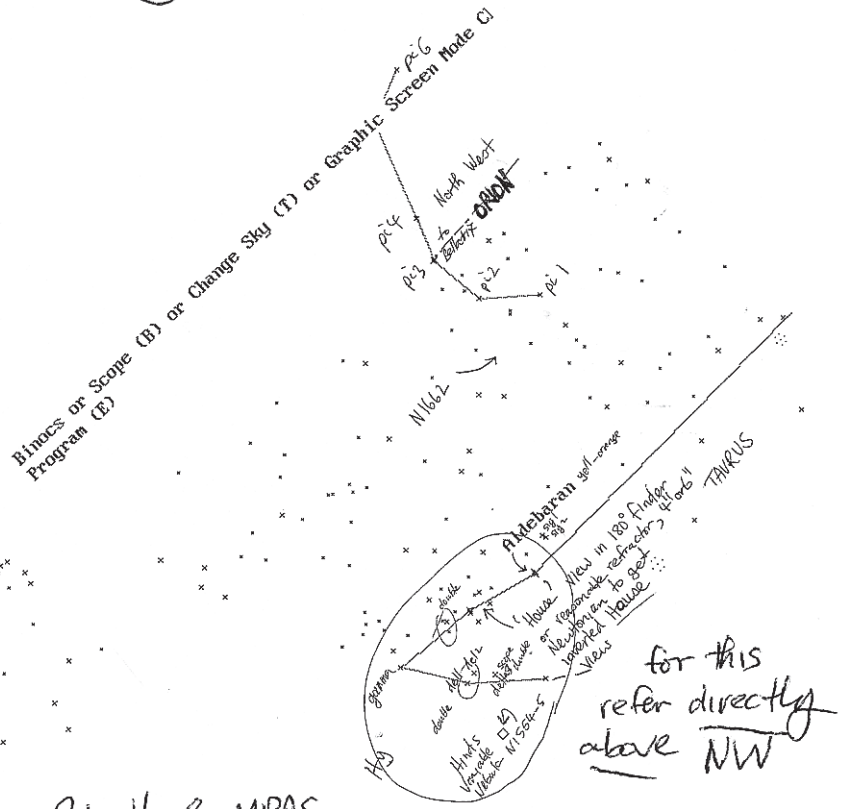 pi 6
Binocs or Scope (B) or Change Sky (T) or Graphic Screen Mode C)
Program (E)
North West
to Bellatrix ORION
pi 4
pi 3
pi 2
pi 1
N1662
Aldebaran yell-orange
sig 1
sig 2
TAURUS
"House" View in 180° finder
or reasonable refractor, 4" or 6"
Newtonian to get
inverted House
View
double
gamma
double del1-del2
double
Hinds
Variable
Nebula N1554-5
Hy
for this
refer directly
above NW